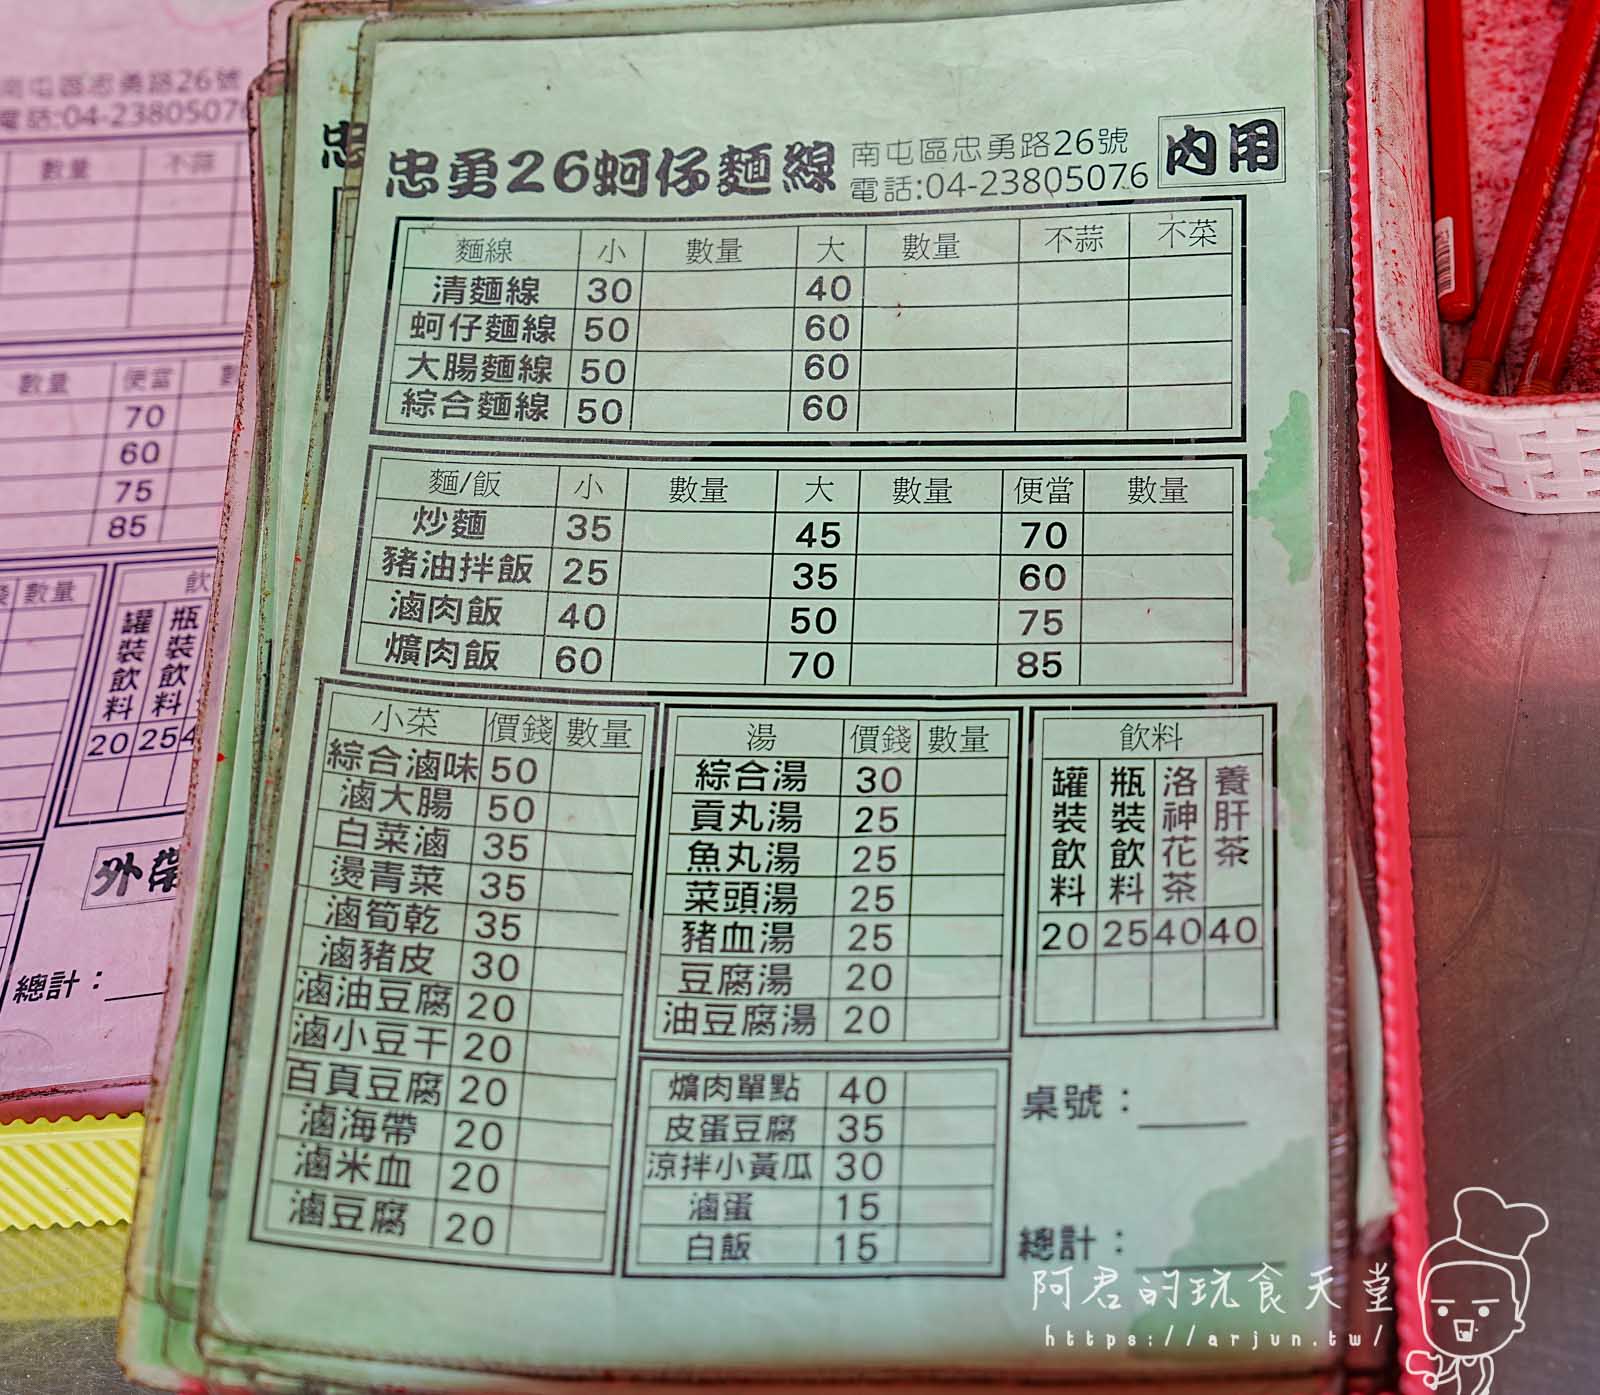 忠勇26蚵仔麵線 南屯區忠勇路26號 內用
電話:04-23805076
麵線 小 數量 大 數量 不蒜 不菜
清麵線 30 40
蚵仔麵線 50 60
大腸麵線 50 60
綜合麵線 50 60
麵/飯 小 數量 大 數量 便當 數量
炒麵 35 45 70
豬油拌飯 25 35 60
滷肉飯 40 50 75
爌肉飯 60 70 85
小菜 價錢 數量
綜合滷味 50
滷大腸 50
白菜滷 35
燙青菜 35
滷筍乾 35
滷豬皮 30
滷油豆腐 20
滷小豆干 20
百頁豆腐 20
滷海帶 20
滷米血 20
滷豆腐 20
湯 價錢 數量
綜合湯 30
貢丸湯 25
魚丸湯 25
菜頭湯 25
豬血湯 25
豆腐湯 20
油豆腐湯 20
爌肉單點 40
皮蛋豆腐 35
涼拌小黃瓜 30
滷蛋 15
白飯 15
飲料
罐裝飲料 瓶裝飲料 洛神花茶 養肝茶
20 25 40 40
桌號：
總計：
南屯區忠勇路26號
電話:04-2380507
數量 不蒜
數量 便當
70
60
75
85
數量 飲
罐裝飲料 瓶裝飲料
20 25 4
外帶
總計：
忠
阿君的玩食天堂
https://arjun.tw/